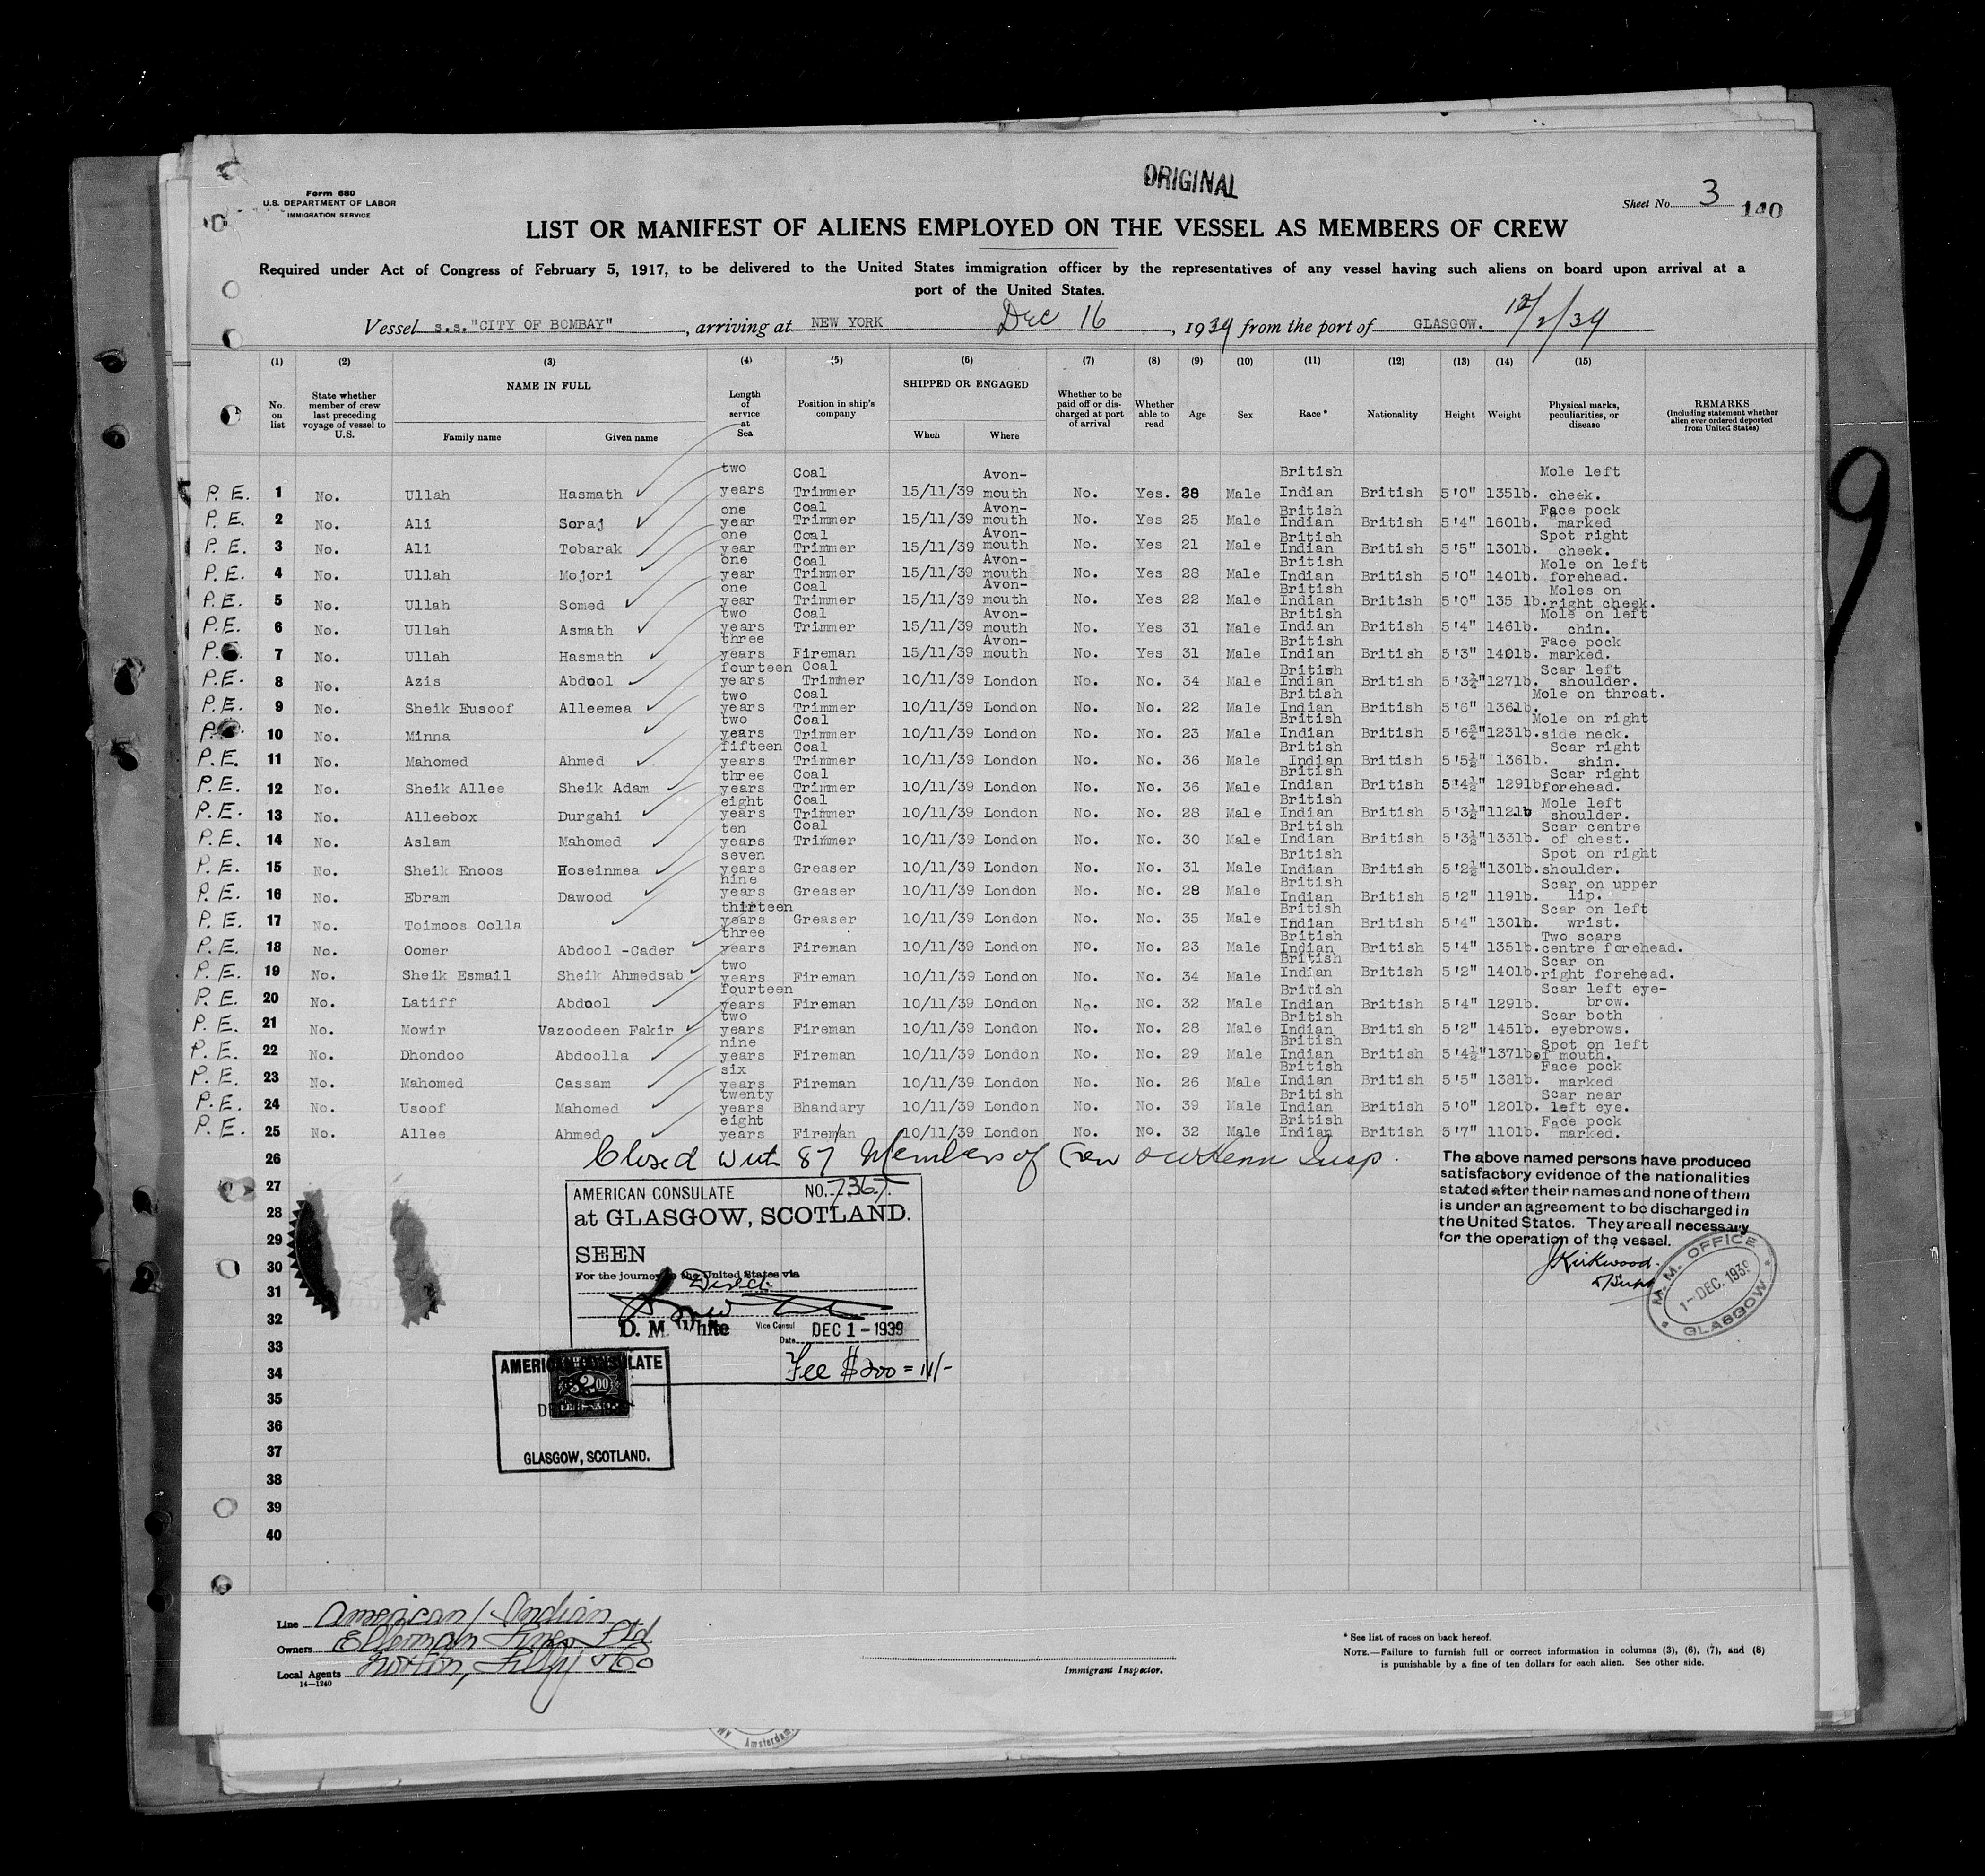 ORIGINAL
Form 680
U.S. DEPARTMENT OF LABOR
IMMIGRATION SERVICE
Sheet No. 3
140
LIST OR MANIFEST OF ALIENS EMPLOYED ON THE VESSEL AS MEMBERS OF CREW
Required under Act of Congress of February 5, 1917, to be delivered to the United States immigration officer by the representatives of any vessel having such aliens on board upon arrival at a
port of the United States.
Vessel s.s."CITY OF BOMBAY", arriving at NEW YORK Dec 16, 1939 from the port of GLASGOW. 12/2/39
(1) (2) (3) (4) (5) (6) (7) (8) (9) (10) (11) (12) (13) (14) (15)
No. on list | State whether member of crew last preceding voyage of vessel to U.S. | NAME IN FULL Family name Given name | Length of service at Sea | Position in ship's company | SHIPPED OR ENGAGED When Where | Whether to be paid off or discharged at port of arrival | Whether able to read | Age | Sex | Race* | Nationality | Height | Weight | Physical marks, peculiarities, or disease | REMARKS (Including statement whether alien ever ordered deported from United States)
P.E. 1 No. Ullah Hasmath two years Coal Trimmer 15/11/39 Avon-mouth No. Yes. 28 Male British Indian British 5'0" 135lb. Mole left cheek.
P.E. 2 No. Ali Soraj one year Coal Trimmer 15/11/39 Avon-mouth No. Yes 25 Male British Indian British 5'4" 160lb. Face pock marked
P.E. 3 No. Ali Tobarak one year Coal Trimmer 15/11/39 Avon-mouth No. Yes 21 Male British Indian British 5'5" 130lb. Spot right cheek.
P.E. 4 No. Ullah Mojori one year Coal Trimmer 15/11/39 Avon-mouth No. Yes 28 Male British Indian British 5'0" 140lb. Mole on left forehead.
P.E. 5 No. Ullah Somed one year Coal Trimmer 15/11/39 Avon-mouth No. Yes 22 Male British Indian British 5'0" 135 lb. Moles on right cheek.
P.E. 6 No. Ullah Asmath two years Coal Trimmer 15/11/39 Avon-mouth No. Yes 31 Male British Indian British 5'4" 146lb. Mole on left chin.
P.E. 7 No. Ullah Hasmath three years Fireman 15/11/39 Avon-mouth No. Yes 31 Male British Indian British 5'3" 140lb. Face pock marked.
P.E. 8 No. Azis Abdool fourteen years Coal Trimmer 10/11/39 London No. No. 34 Male British Indian British 5'3¼" 127lb. Scar left shoulder.
P.E. 9 No. Sheik Eusoof Alleemea two years Coal Trimmer 10/11/39 London No. No. 22 Male British Indian British 5'6" 136lb. Mole on throat.
P.E. 10 No. Minna two years Coal Trimmer 10/11/39 London No. No. 23 Male British Indian British 5'6¾" 123lb. Mole on right side neck.
P.E. 11 No. Mahomed Ahmed fifteen years Coal Trimmer 10/11/39 London No. No. 36 Male British Indian British 5'5½" 136lb. Scar right shin.
P.E. 12 No. Sheik Allee Sheik Adam three years Coal Trimmer 10/11/39 London No. No. 36 Male British Indian British 5'4½" 129lb Scar right forehead.
P.E. 13 No. Alleebox Durgahi eight years Coal Trimmer 10/11/39 London No. No. 28 Male British Indian British 5'3½" 112lb Mole left shoulder.
P.E. 14 No. Aslam Mahomed ten years Coal Trimmer 10/11/39 London No. No. 30 Male British Indian British 5'3½" 133lb. Scar centre of chest.
P.E. 15 No. Sheik Enoos Hoseinmea seven years Greaser 10/11/39 London No. No. 31 Male British Indian British 5'2½" 130lb. Spot on right shoulder.
P.E. 16 No. Ebram Dawood nine years Greaser 10/11/39 London No. No. 28 Male British Indian British 5'2" 119lb. Scar on upper lip.
P.E. 17 No. Toimoos Oolla thirteen years Greaser 10/11/39 London No. No. 35 Male British Indian British 5'4" 130lb. Scar on left wrist.
P.E. 18 No. Oomer Abdool -Cader three years Fireman 10/11/39 London No. No. 23 Male British Indian British 5'4" 135lb. Two scars centre forehead.
P.E. 19 No. Sheik Esmail Sheik Ahmedsab two years Fireman 10/11/39 London No. No. 34 Male British Indian British 5'2" 140lb. Scar on right forehead.
P.E. 20 No. Latiff Abdool fourteen years Fireman 10/11/39 London No. No. 32 Male British Indian British 5'4" 129lb. Scar left eye-brow.
P.E. 21 No. Mowir Vazoodeen Fakir two years Fireman 10/11/39 London No. No. 28 Male British Indian British 5'2" 145lb. Scar both eyebrows.
P.E. 22 No. Dhondoo Abdoolla nine years Fireman 10/11/39 London No. No. 29 Male British Indian British 5'4½" 137lb. Spot on left of mouth.
P.E. 23 No. Mahomed Cassam six years Fireman 10/11/39 London No. No. 26 Male British Indian British 5'5" 138lb. Face pock marked
P.E. 24 No. Usoof Mahomed twenty years Bhandary 10/11/39 London No. No. 39 Male British Indian British 5'0" 120lb. Scar near left eye.
P.E. 25 No. Allee Ahmed eight years Fireman 10/11/39 London No. No. 32 Male British Indian British 5'7" 110lb. Face pock marked.
26 Closed with 87 Members of Crew Insp.
27
28
29
30
31
32
33
34
35
36
37
38
39
40
The above named persons have produced
satisfactory evidence of the nationalities
stated after their names and none of them
is under an agreement to be discharged in
the United States. They are all necessary
for the operation of the vessel.
J Kirkwood.
M. M. OFFICE
1-DEC. 1939
GLASGOW
AMERICAN CONSULATE NO. 7367.
at GLASGOW, SCOTLAND.
SEEN
For the journey to the United States via
Direct
D. M. White Vice Consul
Date DEC 1-1939
Fee $200 = 11/-
AMERICAN CONSULATE
2.00
GLASGOW, SCOTLAND.
9
Line American / Indian
Owners Ellerman Lines Ltd
Local Agents Norton, Lilly & Co
14-1240
Immigrant Inspector.
* See list of races on back hereof.
NOTE.—Failure to furnish full or correct information in columns (3), (6), (7), and (8)
is punishable by a fine of ten dollars for each alien. See other side.
Amsterdam